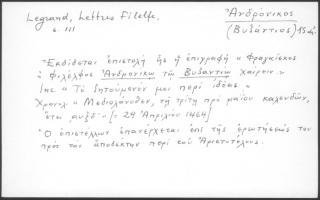 Legrand, Lettres Filelfe.
σ. 111
Ἀνδρόνικος
(Βυζάντιος) 15 αἰ.
Ἐκδίδεται ἐπιστολὴ ἧς ἡ ἐπιγραφὴ « Φραγκίσκος
ὁ Φιλέλφος Ἀνδρονίκῳ τῷ Βυζαντίῳ χαίρειν »
Inc « Τὸ ζητούμενον μοι περὶ ἰδέας »
Χρονολ. « Μεδιολάνοθεν, τῇ τρίτῃ πρὸ μαΐου καλενδῶν,
ἔτει αυξδʹ » [= 29 Ἀπριλίου 1464]
Ὁ ἐπιστέλλων ἐπανέρχεται ἐπὶ τῆς ἐρωτήσεώς του
πρὸς τὸν ἀποδέκτην περὶ τοῦ Ἀριστοτέλους.